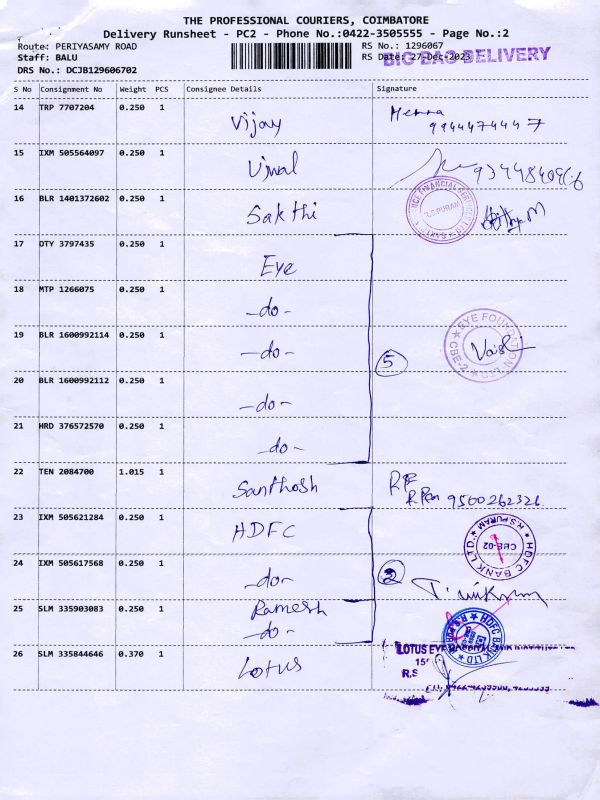 THE PROFESSIONAL COURIERS, COIMBATORE
Delivery Runsheet - PC2 - Phone No.:0422-3505555 - Page No.:2
Route: PERIYASAMY ROAD RS No.: 1296067
Staff: BALU RS Date: 27-Dec-2023 BIG BAG DELIVERY
DRS No.: DCJB129606702
S No Consignment No Weight PCS Consignee Details Signature
14 TRP 7707204 0.250 1 Vijay
9944474447
15 IXM 505564097 0.250 1
16 BLR 1401372602 0.250 1 Sakthi R.S.PURAM
17 DTY 3797435 0.250 1 Eye
18 MTP 1266075 0.250 1 -do-
19 BLR 1600992114 0.250 1 -do- 5 EYE FOUNDATION LTD CBE-2
20 BLR 1600992112 0.250 1 -do-
21 HRD 376572570 0.250 1 -do-
22 TEN 2084700 1.015 1 Santhosh
9500262321
23 IXM 505621284 0.250 1 HDFC HDFC BANK LTD. R.S.PURAM CBE-02
24 IXM 505617568 0.250 1 -do- 2
25 SLM 335903083 0.250 1 Ramesh
-do- HDFC BANK LTD
26 SLM 335844646 0.370 1 Lotus LOTUS EYE
R.S